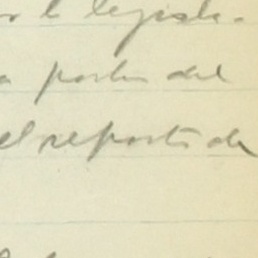 legisla-
a partir del
el reparto de